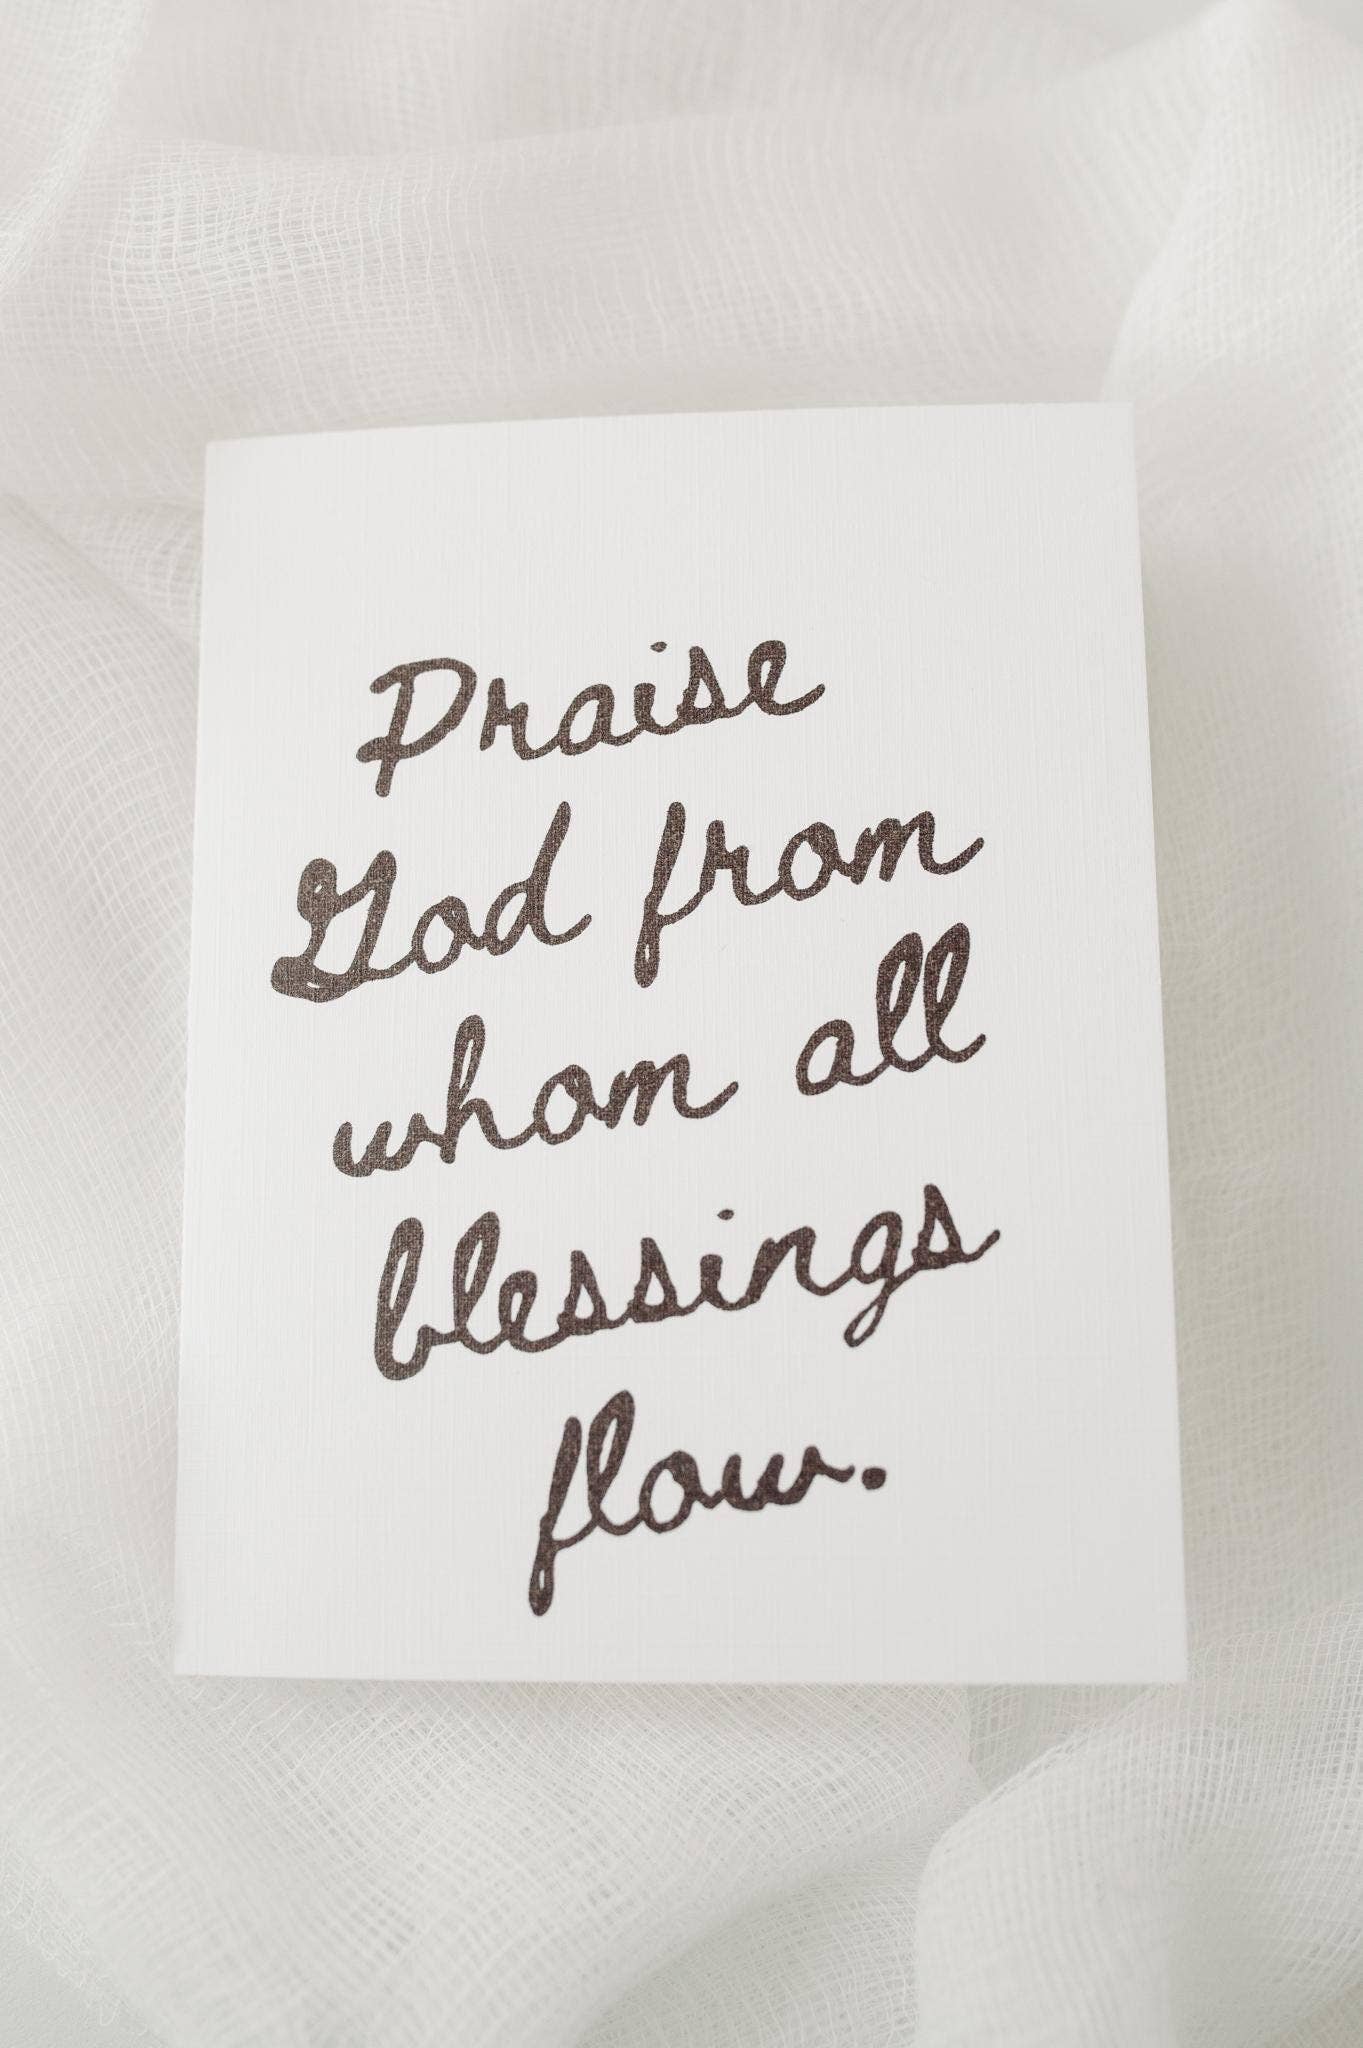 Praise
God from
whom all
blessings
flow.